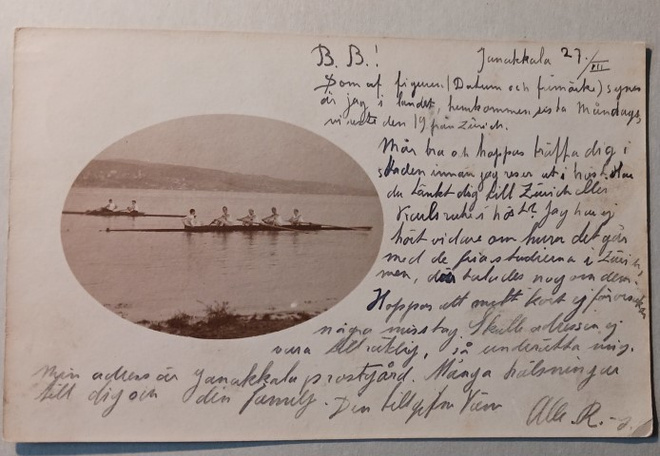 B. B.! Janakkala 27./VII
Som af figuren (Datum och frimärke) synes
är jag i landet, hemkommen sista Måndags,
vi reste den 19 från Zürich.
Mår bra och hoppas träffa dig i
staden innan jag reser ut i höst. Har
du tänkt dig till Zürich eller
Karlsruhe i höst? Jag har ej
hört vidare om huru det går
med de fria studierna i Zürich,
men, det talades nog om dem.
Hoppas att mytt kort ej förorsakar
några misstag. Skulle adressen ej
vara tillräcklig, så underrätta mig.
Min adress är Janakkala prostgård. Många hälsningar
till dig och din familj. Din tillgifne Vän Alle R.